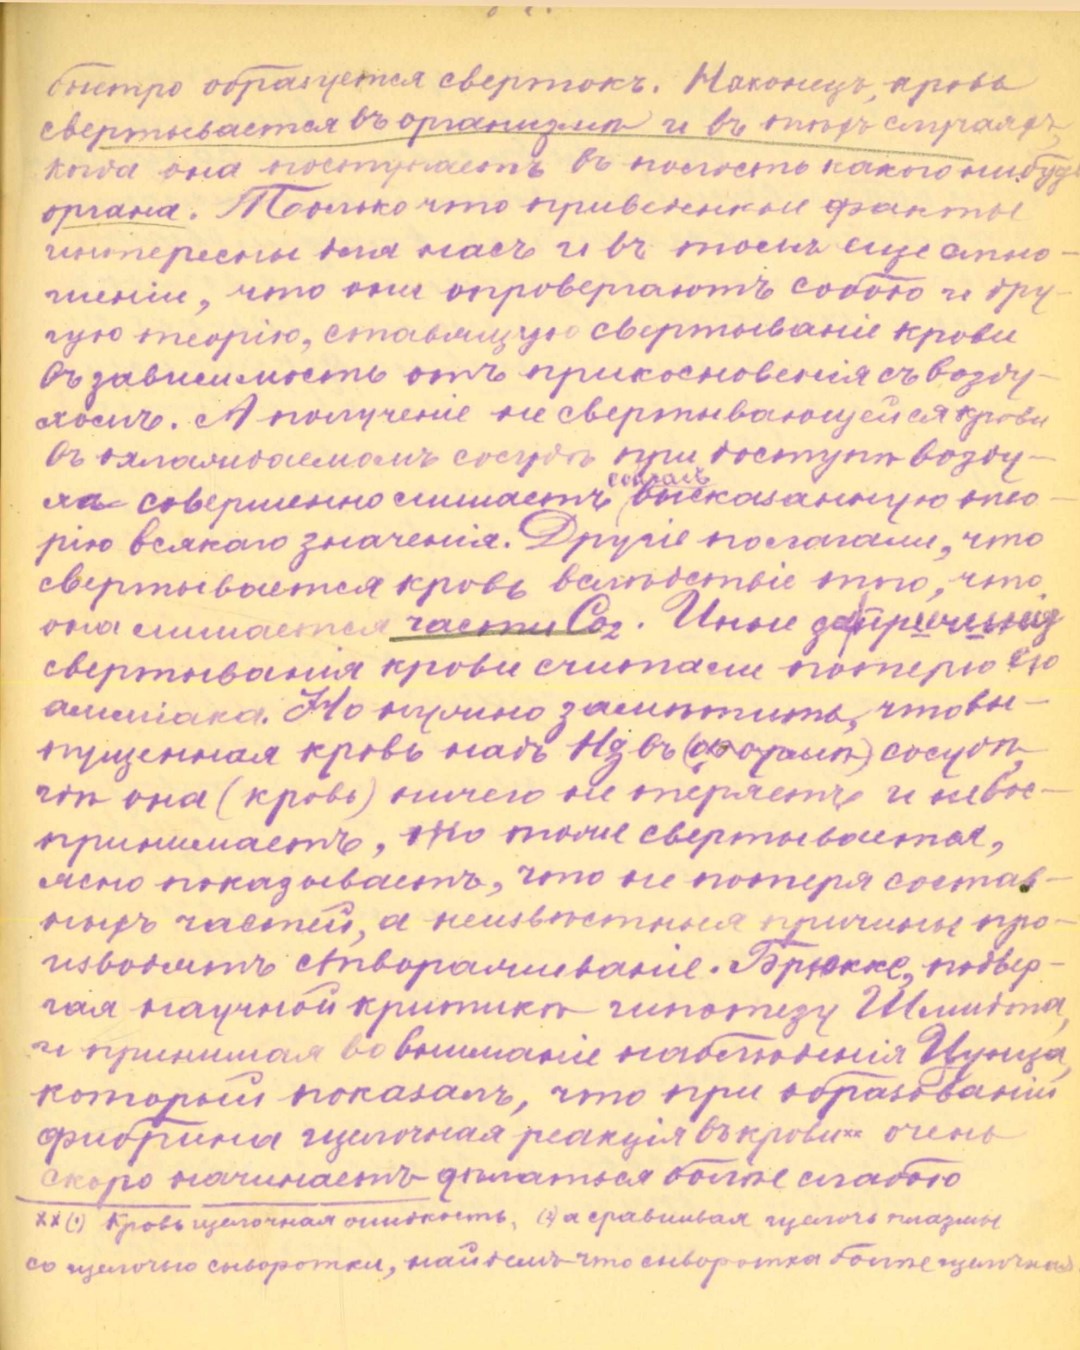 быстро образуется свертокъ. Наконецъ, кровь
свертывается въ организмѣ и въ тѣхъ случаяхъ,
когда она поступаетъ въ полость какого нибудь
органа. Только что приведенные факты
интересны для насъ и въ томъ еще отно-
шеніи, что они опровергаютъ собою и дру-
гую теорію, ставящую свертываніе крови
въ зависимость отъ прикосновенія съ возду-
хомъ. А полученіе не свертывающейся крови
въ охлаждаемомъ сосудѣ при доступѣ возду-
ха совершенно лишаетъ высказанную тео-
рію всякаго значенія. Другіе полагали, что
свертывается кровь вслѣдствіе того, что
она лишается части Co2. Иные за причину
свертыванія крови считали потерю ею
амміака. Но нужно замѣтить, что вы-
пущенная кровь надъ Hg въ сосудѣ,
гдѣ она (кровь) ничего не теряетъ и не вос-
принимаетъ, но тоже свертывается,
ясно показываетъ, что не потеря состав-
ныхъ частей, а неизвѣстныя причины про-
изводятъ створаживаніе. Брюкке, подвер-
гая научной критикѣ гипотезу Шмидта,
и принимая во вниманіе наблюденія Цунца,
который показалъ, что при образованіи
фибрина щелочная реакція въ крови ×× очень
скоро начинаетъ дѣлаться болѣе слабою
××(1) Кровь щелочная жидкость, (2) а сравнивая щелочь плазмы
со щелочью сыворотки, найдемъ что сыворотка болѣе щелочная